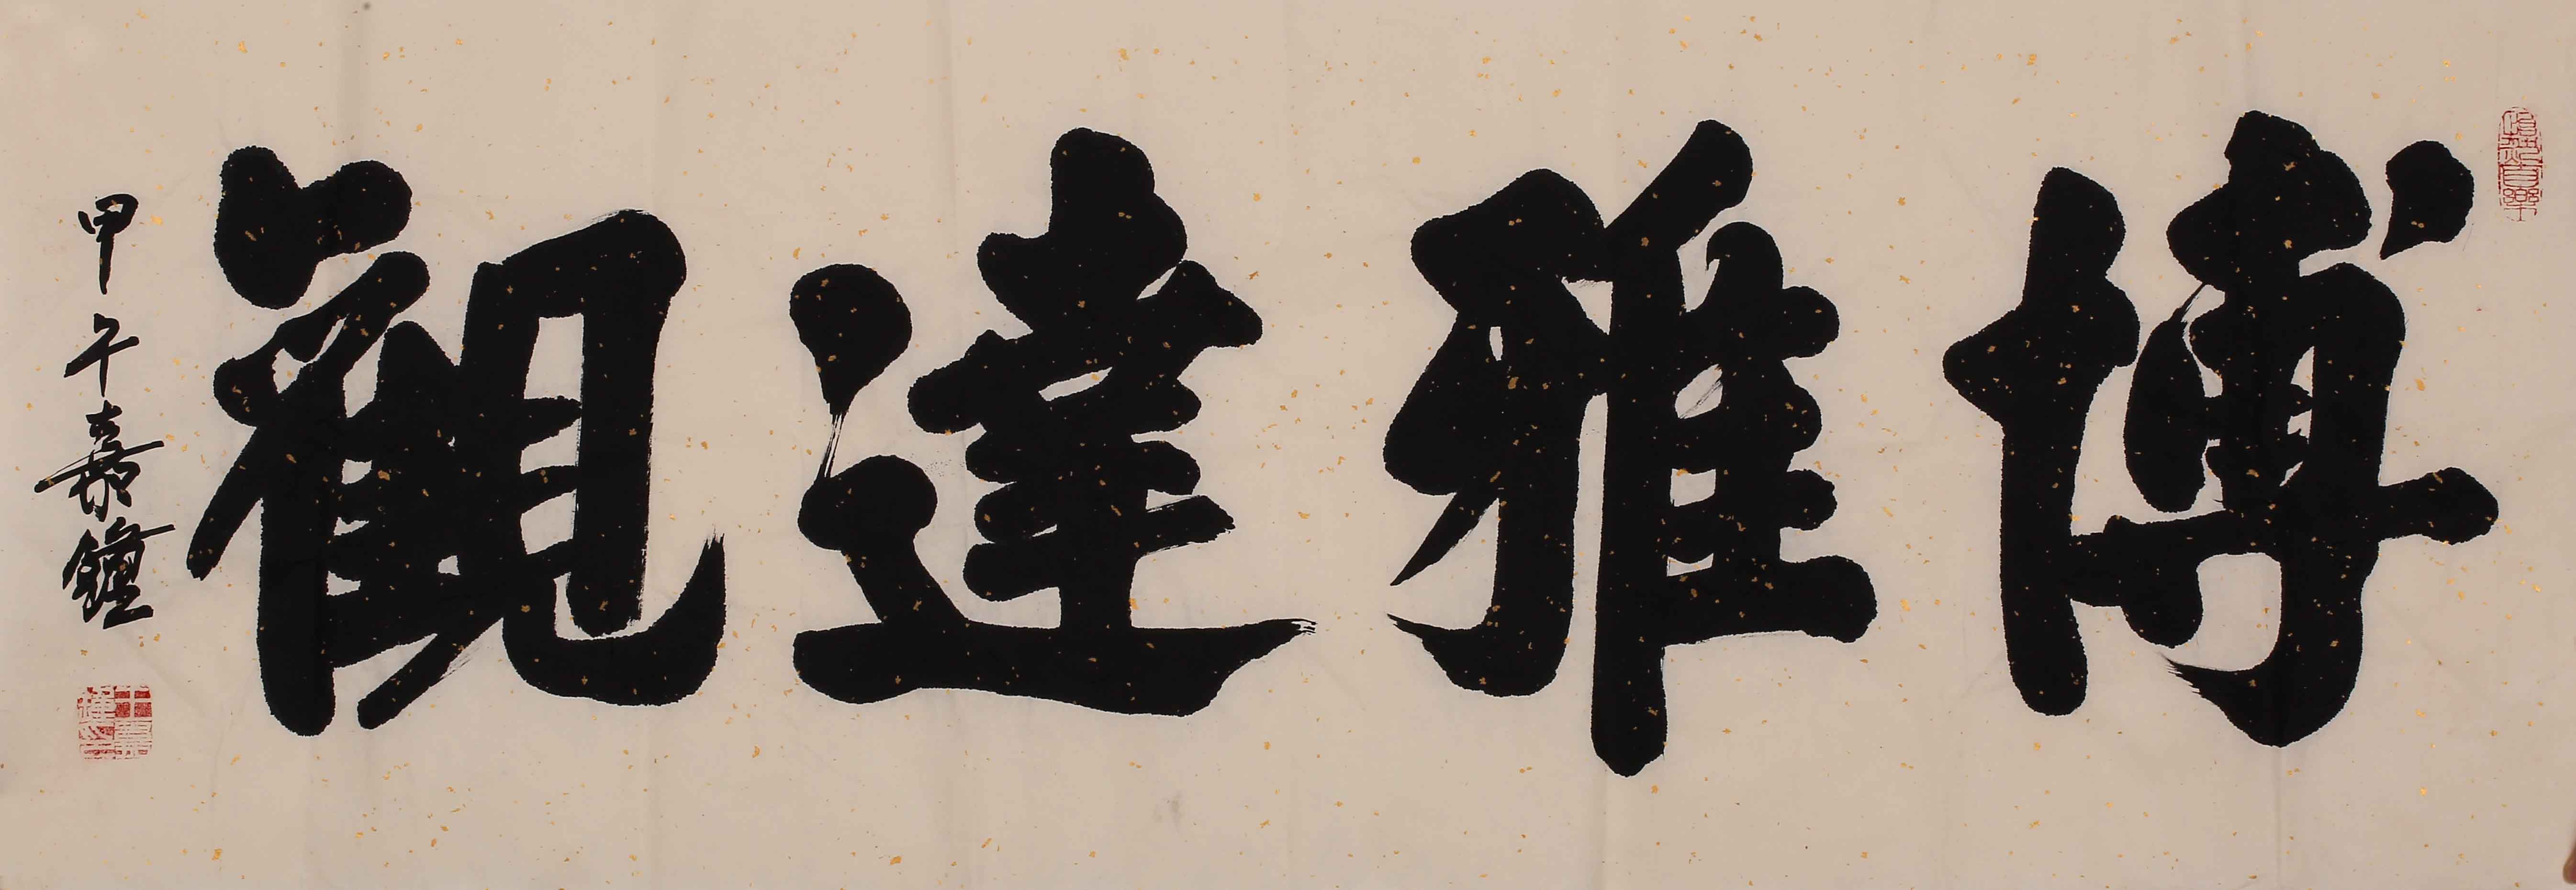 博雅達觀
甲午嘉鐘